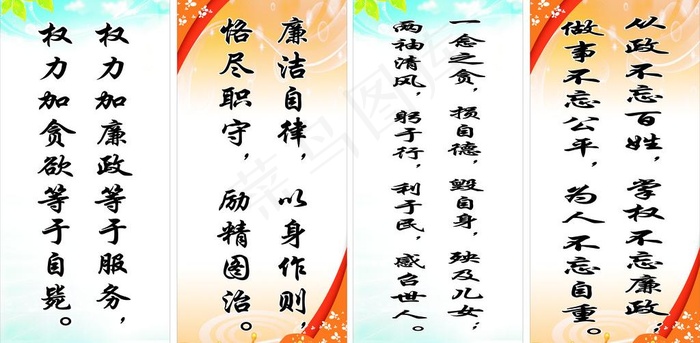 权力加廉政等于服务，
权力加贪欲等于自毙。
廉洁自律，以身作则，
恪尽职守，励精图治。
一念之贪，损自德，毁自身，殃及儿女；
两袖清风，躬于行，利于民，感召世人。
从政不忘百姓，掌权不忘廉政，
做事不忘公平，为人不忘自重。
菜鸟图库